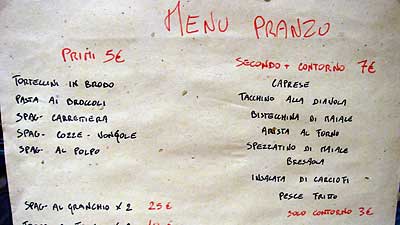 MENU PRANZO
PRIMI 5€
TORTELLINI IN BRODO
PASTA AI BROCCOLI
SPAG- CARRETIERA
SPAG- COZZE - VONGOLE
SPAG AL POLPO
SPAG- AL GRANCHIO x 2 25€
SECONDO + CONTORNO 7€
CAPRESE
TACCHINO ALLA DIAVOLA
BISTECCHINA DI MAIALE
ARISTA AL FORNO
SPEZZATINO DI MAIALE
BRESAOLA
INSALATA DI CARCIOFI
PESCE FRITTO
SOLO CONTORNO 3€